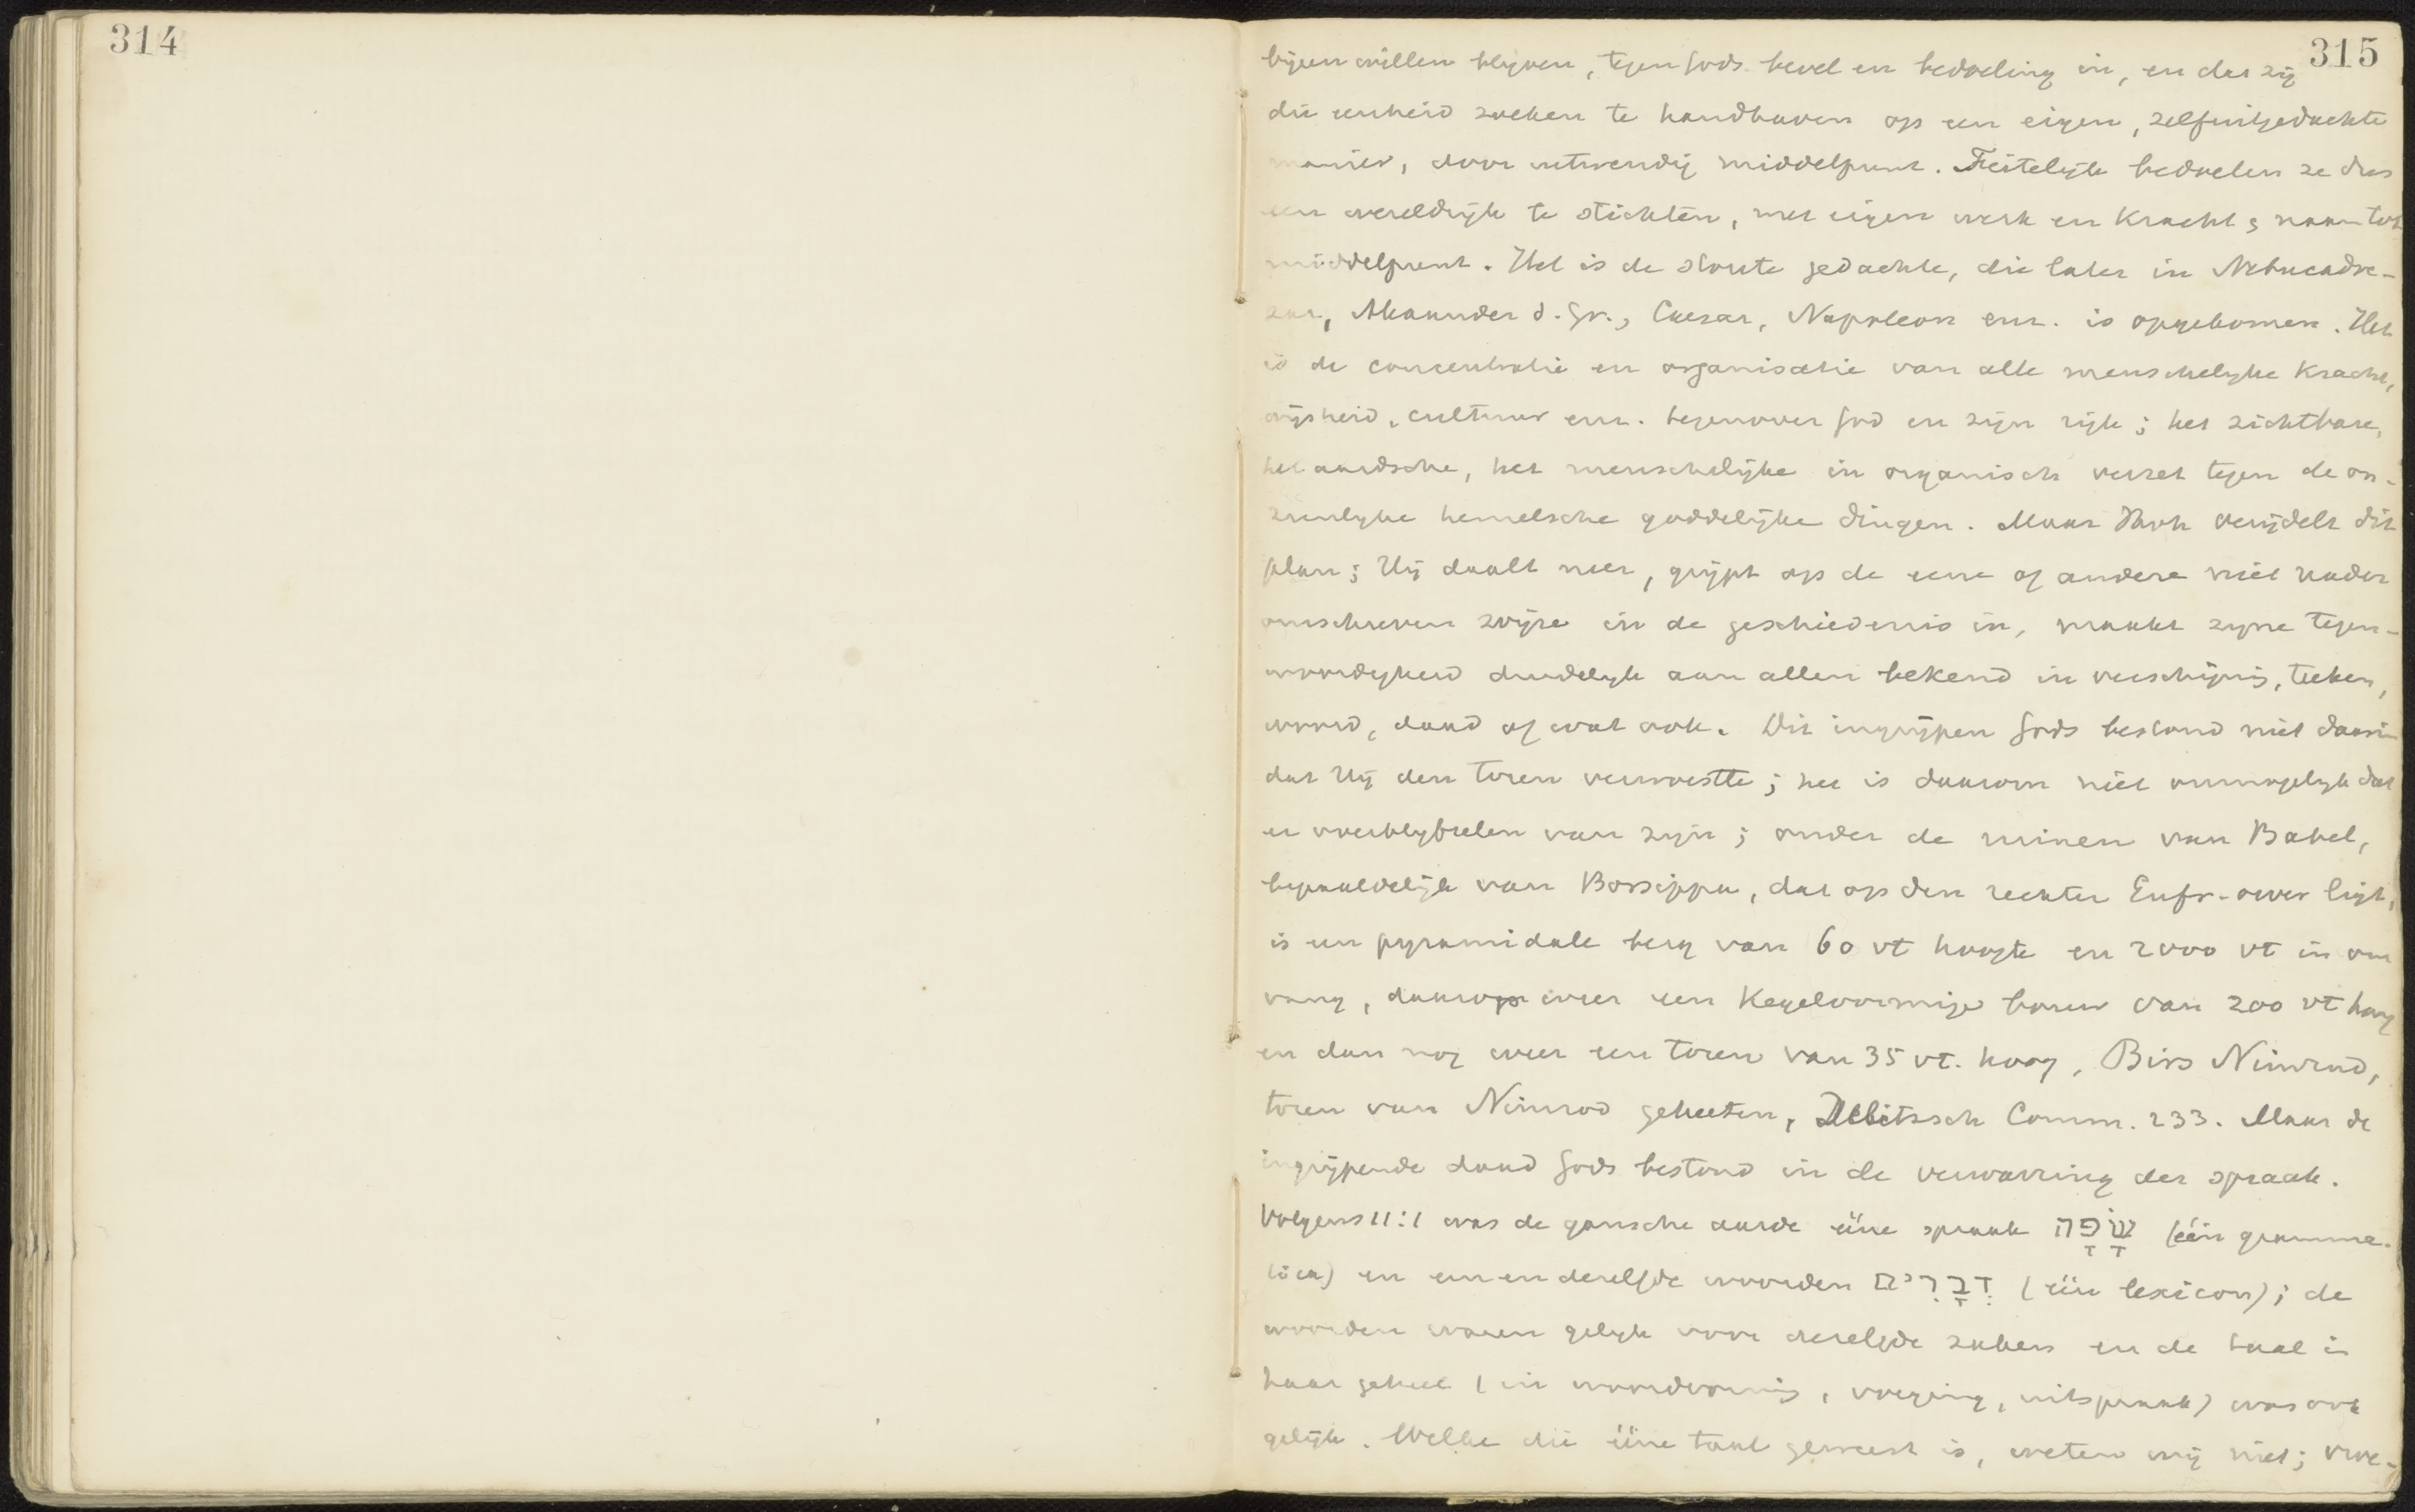 314
315
bijeen willen blijven, tegen Gods bevel en bedoeling in, en dat zij
die eenheid zoeken te handhaven op een eigen, zelfuitgedachte
manier, door uitwendig middelpunt. Feitelijk bedoelen ze dus
een wereldrijk te stichten, met eigen werk en kracht & naam tot
middelpunt. Het is de stoute gedachte, die later in Nebucadre-
zar, Alexander d. Gr., Caesar, Napoleon enz. is opgekomen. Het
is de concentratie en organisatie van alle menschelijke kracht,
wijsheid, cultuur enz. tegenover God en zijn rijk; het zichtbare,
het aardsche, het menschelijke in organisch verzet tegen de on-
zienlijke hemelsche goddelijke dingen. Maar Jhvh verijdelt dit
plan; Hij daalt neer, grijpt op de eene of andere niet nader
omschreven wijze in de geschiedenis in, maakt zijne tegen-
woordigheid duidelijk aan allen bekend in verschijning, teeken,
woord, daad of wat ook. Dit ingrijpen Gods bestond niet daarin
dat Hij den toren verwoestte; het is daarom niet onmogelijk dat
er overblijfselen van zijn; onder de ruinen van Babel,
bepaaldelijk van Borsippa, dat op den rechter Eufr-oever ligt,
is een pyramidale berg van 60 vt hoogte en 2000 vt in om
vang, daarop weer een kegelvormige bouw van 200 vt hoog
en dan nog weer een toren van 35 vt. hoog, Birs Nimrud,
toren van Nimrod geheeten, Delitzsch Comm. 233. Maar de
ingrijpende daad Gods bestond in de verwarring der spraak.
Volgens 11:1 was de gansche aarde ééne spraak שָׂפָה (één gramma-
tica) en een en dezelfde woorden דְּבָרִים (één lexicon); de
woorden waren gelijk voor dezelfde zaken en de taal in
haar geheel (in woordvorming, voeging, uitspraak) was ook
gelijk. Welke die ééne taal geweest is, weten wij niet; vroe-